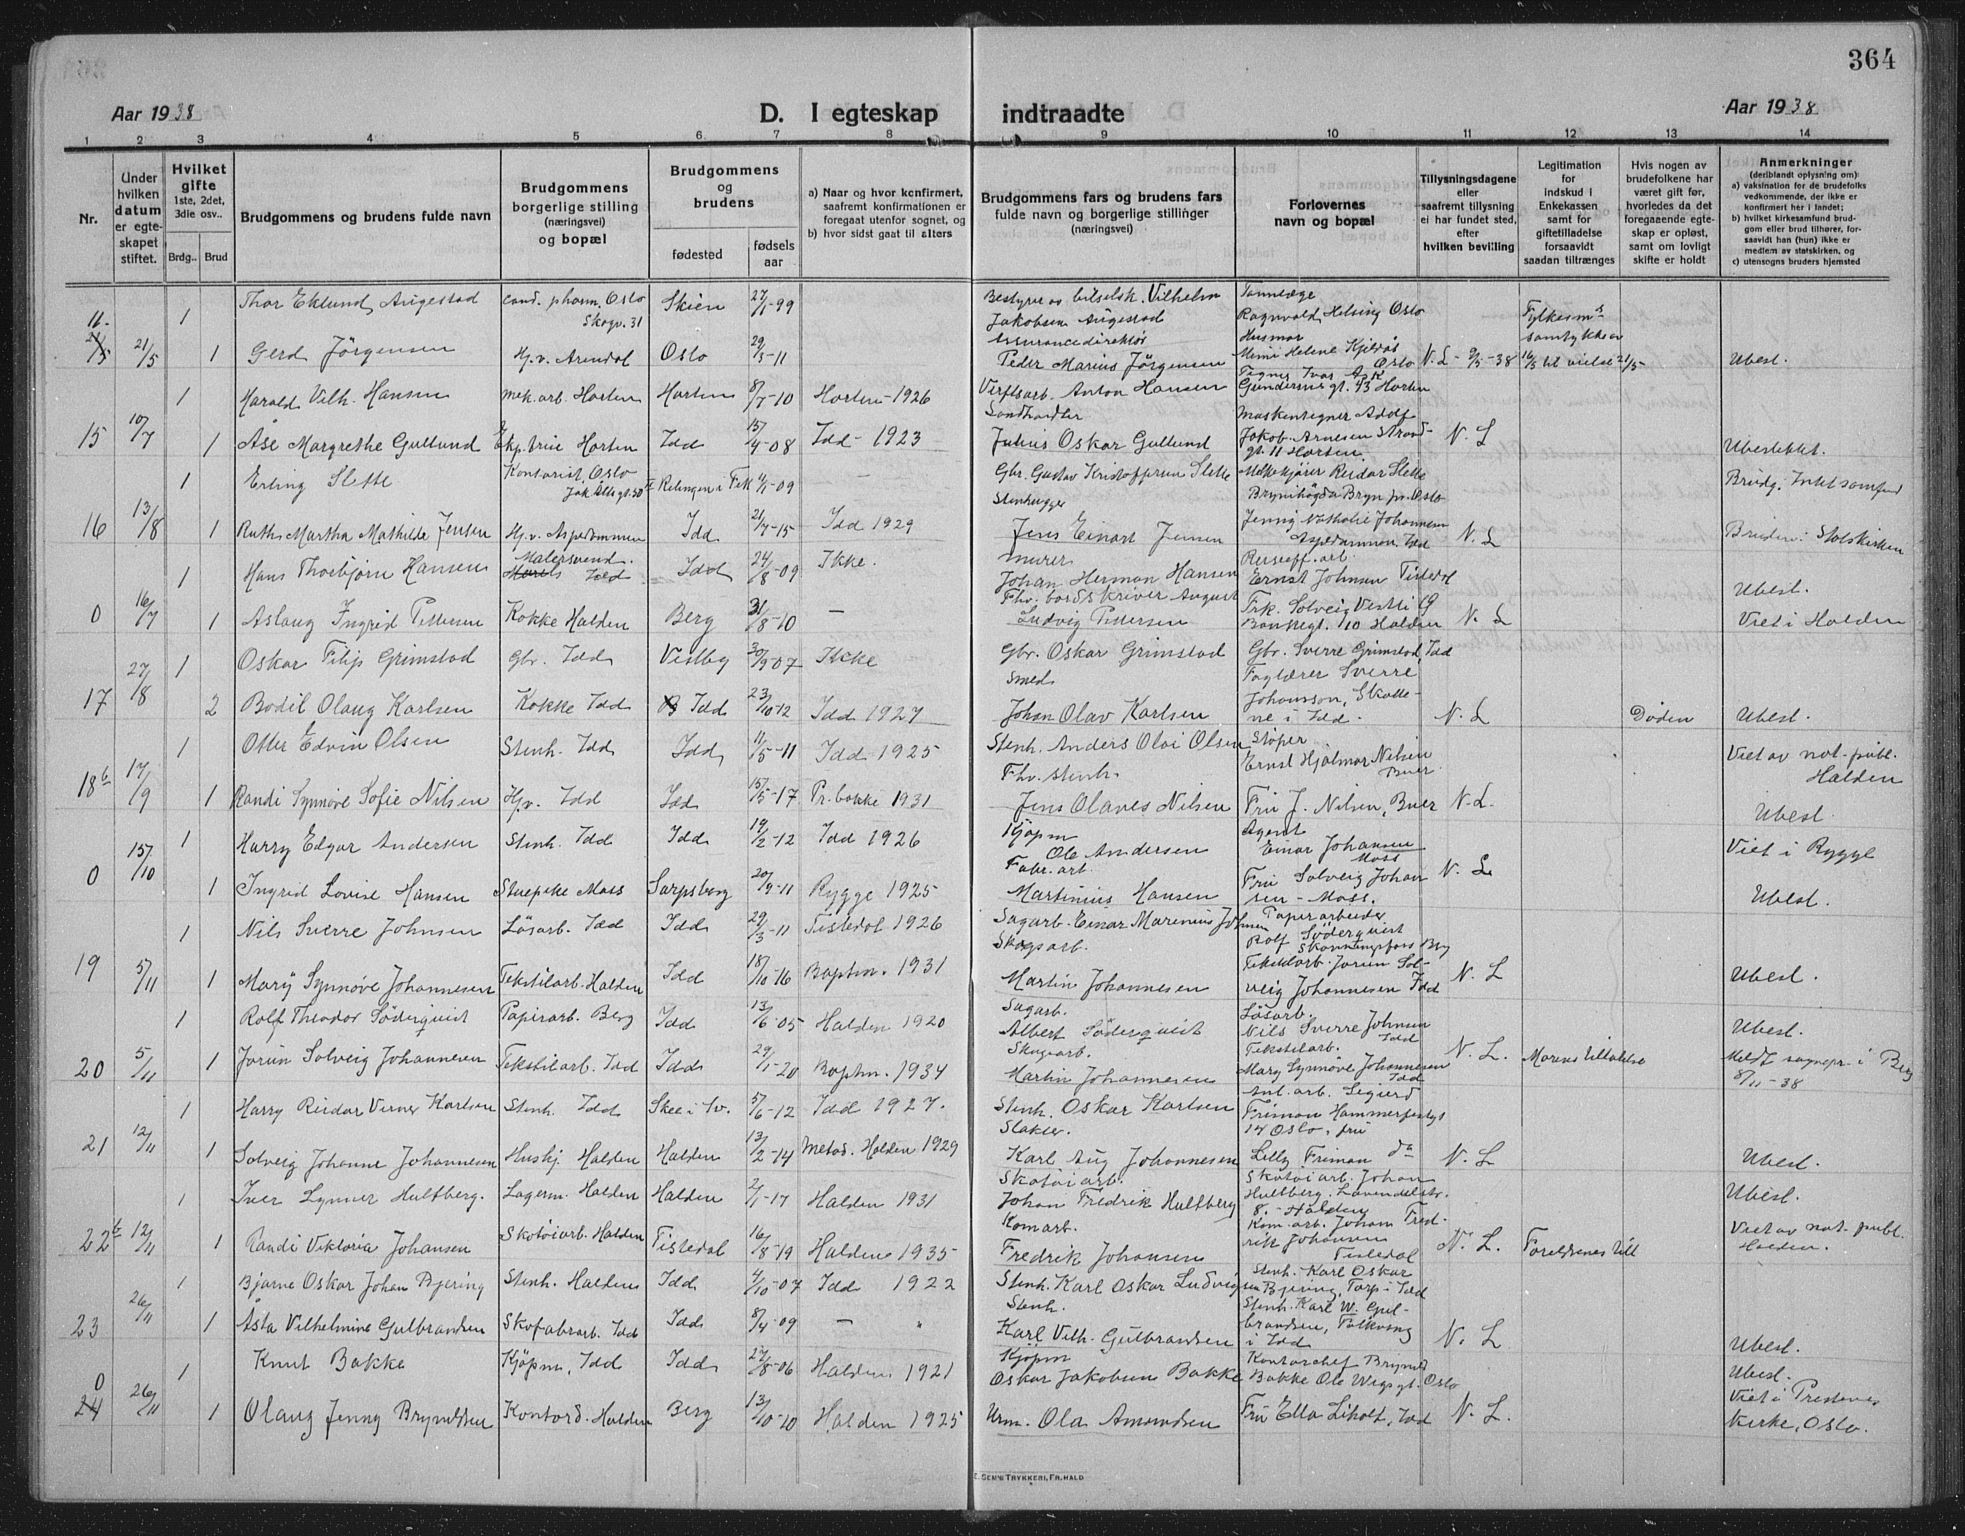 364
Aar 1938
D. I egteskap indtraadte
Aar 1938
1 2 3 4 5 6 7 8 9 10 11 12 13 14
Nr.
Under hvilken datum er egteskapet stiftet.
Hvilket gifte
1ste, 2det, 3die osv..
Brdg..
Brud
Brudgommens og brudens fulde navn
Brudgommens borgerlige stilling (næringsvei) og bopæl
Brudgommens og brudens
fødested
fødsels aar
a) Naar og hvor konfirmert, saafremt konfirmationen er foregaat utenfor sognet, og
b) hvor sidst gaat til alters
Brudgommens fars og brudens fars fulde navn og borgerlige stillinger (næringsvei)
Forlovernes navn og bopæl
Tillysningsdagene eller saafremt tillysning ei har fundet sted, efter hvilken bevilling
Legitimation for indskud i Enkekassen samt for giftetilladelse forsaavidt saadan tiltrænges
Hvis nogen av brudefolkene har været gift før, hvorledes da det foregaaende egteskap er opløst, samt om lovligt skifte er holdt
Anmerkninger
(deriblandt oplysning om)
a) vaksination for de brudefolks vedkommende, der ikke er konfirmert her i landet;
b) hvilket kirkesamfund brudgom eller brud tilhører, forsaavidt han (hun) ikke er medlem av statskirken, og
c) utensogns bruders hjemsted
1 Thor Eklund Augestad cand. pharm. Oslo Skogv. 31 Skien 27/1-99 Bestyrer av bilselsk. Vilhelm Jakobsen Augestad Tannlæge Ragnvald Helsing Oslo Fylkesm's samtykke av
21/5 1 Gerd Jörgensen Hj.v. Arendal Oslo 29/3-11 Assuransedirektör Peder Marius Jörgensen Husmor Mimi Helene Kjeldås Oslo N.L-9/5-38 16/5 til vielse 21/5 Ubesl.
1 Harald Vilh. Hansen mek. arb. Horten Horten 8/7-10 Horten-1926 Verftsarb. Anton Hansen Tegner Ivar Ask Gundersens gt. 43 Horten
15 10/7 1 Åse Margrethe Gullund Eksp.trise Horten Idd 15/4-08 Idd-1923 Landhandler Julius Oskar Gullund Maskintegner Adolf Jakob Arnesen Strandgt. 11 Horten N.L Ubeslektet.
1 Erling Slette Kontorist, Oslo Jak. Aallsgt. 50 II Relingen i Fet 4/1-09 — Gbr. Gustav Kristoffersen Slette Melkekjører Reidar Slette Brynihögda Bryn pr. Oslo Brudg. Intet samfund
16 13/8 1 Ruth Martha Mathilde Jensen Hj.v. Aspedammen Idd 21/7-15 Idd 1929 Stenhugger Jens Einart Jensen Jenny Nathalie Johannesen Aspedammen, Idd N.L Bruden: Statskirken
1 Hans Thorbjørn Hansen Malersvend. Idd Idd 24/8-09 Ikke. murer Johan Herman Hansen Reiseoff. arb. Ernst Johnsen Tistedal Ubesl.
0 16/7 1 Aslaug Ingrid Pettersen Kokke Halden Berg 31/8-10 — Fhv. bordskriver August Ludvig Pettersen Frk. Solveig Vestli Bankegt. 10 Halden N.L Viet i Halden
1 Oskar Filip Grimstad Gbr. Idd Vestby 30/9-07 Ikke Gbr. Oskar Grimstad Gbr. Sverre Grimstad, Idd
17 27/8 2 Bodil Olaug Karlsen Kokke Idd Idd 23/10-12 Idd 1927 Smed Johan Olav Karlsen Faglærer Sverre Johansson, Skottene i Idd. N.L Døden Ubesl.
1 Otter Edvin Olsen Stenh. Idd Idd 11/5-11 Idd 1925 Stenh. Anders Olai Olsen Støper Ernst Hjalmar Nilsen Buer. Viet av not. publ. Halden
18b 17/9 1 Randi Synnøve Sofie Nilsen Hj.v. Idd Idd 15/5-17 Pr.bakke 1931 Fhv. stenh. Jens Olaves Nilsen Fru J. Nilsen, Buer N.L. Ubesl.
1 Harry Edgar Andersen Stenh. Idd Idd 19/2-12 Idd 1926 Kjöpm Ole Andersen Agent Einar Johansen Moss Viet i Rygge
0 15/10 1 Ingrid Lovise Hansen Stuepike Moss Sarpsborg 20/9-11 Rygge 1925 Fabr. arb. Martinius Hansen Fru Solveig Johansen-Moss. N.L Ubesl.
1 Nils Sverre Johnsen Lösarb. Idd Idd 29/3-11 Tistedal 1926 Sagarb. Einar Marenius Johnsen Papirarbeider Rolf Söderquist Skonningsfoss Berg
19 5/11 1 Mary Synnöve Johannesen Tekstilarb. Halden Idd 18/10-16 Baptm. 1931 Skogsarb. Martin Johannesen Tekstilarb. Jorun Solveig Johannesen Idd N.L Ubesl.
1 Rolf Theodor Söderquist Papirarb. Berg Idd 13/6-05 Halden 1920 Sagarb. Albert Söderquist Lösarb. Nils Sverre Johnsen Idd Ubesl.
20 5/11 1 Jorun Solveig Johannesen Tekstilarb. Idd Idd 29/1-20 Baptm. 1934 Skogsarb. Martin Johannesen Tekstilarb. Mary Synnøve Johannesen Idd N.L. Morens tillatelse Meldt sognepr. i Berg 8/11-38
1 Harry Reidar Verner Karlsen Stenh. Idd Skee i Sv. 5/6-12 Idd 1927. Stenh. Oskar Karlsen Anl. arb. Sigurd Friman Hammerfestgt 14 Oslo, fru
21 12/11 1 Solveig Johanne Johannesen Hushj. Halden Halden 13/2-14 Metod. Halden 1929 Slakter. Karl Aug Johannesen Lilly Friman do N.L Ubesl.
1 Iver Lynner Hultberg. Lagerm. Halden Halden 2/1-17 Halden 1931 Skotøiarb. Johan Fredrik Hultberg Skotøiarb. Johan Hultberg. Lavendelstr. 8. - Halden Ubesl.
22b 12/11 1 Randi Viktoria Johansen Skotöiarb. Halden Tistedal 16/8-19 Halden 1935 Kom. arb. Fredrik Johansen Kom. arb. Johan Fredrik Johansen Tistedal N.L. Foreldrenes till Viet av not. publ. Halden.
1 Bjarne Oskar Johan Bjering Stenh. Halden Idd 4/10-07 Idd 1922 Stenh. Karl Oskar Ludvigsen Bjering, Torp i Idd Stenh. Karl Oskar
23 26/11 1 Åsta Vilhelmine Gulbrandsen Skofabarb. Idd Idd 8/4-09 — " Stenh. Karl Vilh. Gulbrandsen Stenh. Karl W. Gulbrandsen, Folkvang i Idd N.L Ubesl.
1 Knut Bakke Kjöpm. Idd Idd 27/8-06 Halden 1921 Kjöpm Oskar Jakobsen Bakke Kontorchef Brynild Bakke Ole Wigs gt. Oslo Ubesl.
0 24 26/11 1 Olaug Jenny Bryneldsen Kontord. Halden Berg 13/10-10 Halden 1925 Urm. Ola Amundsen Fru Ella Liholt, Idd N.L. Viet i Prestenes Kirke, Oslo.
E. SEM'S TRYKKERI, FR.HALD